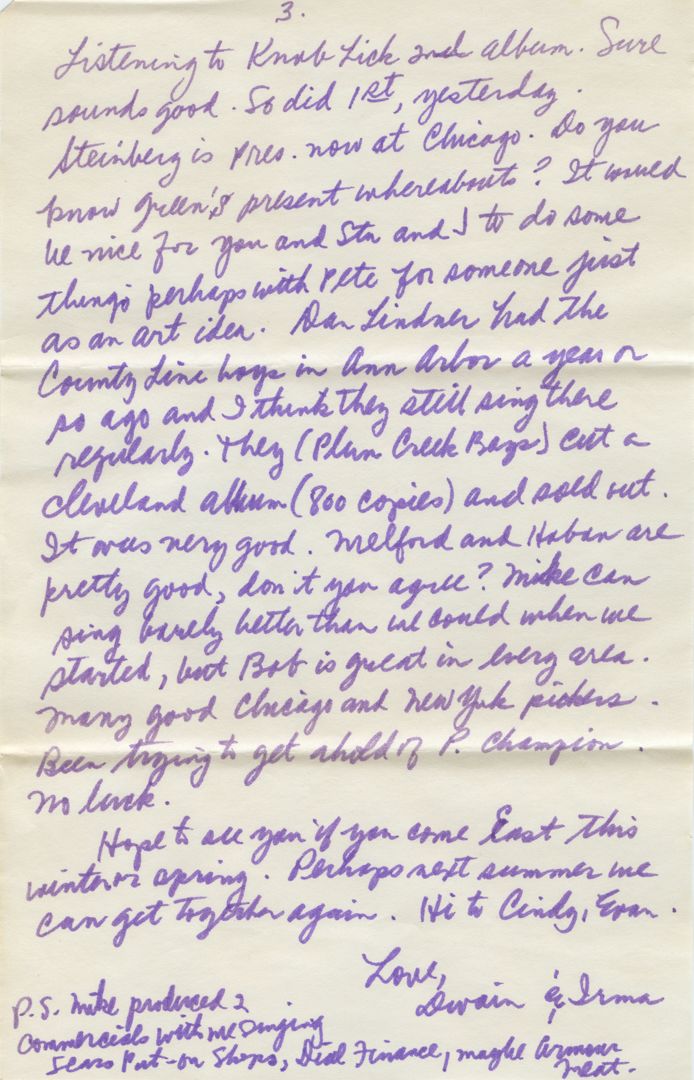 3.
Listening to Knob Lick 2nd album. Sure
sounds good. So did 1st, yesterday.
Steinberg is Pres. now at Chicago. Do you
know Green's present whereabouts? It would
be nice for you and Stu and I to do some
things perhaps with Pete for someone just
as an art idea. Dan Lindner had the
County Line boys in Ann Arbor a year or
so ago and I think they still sing there
regularly. They (Plum Creek Boys) cut a
Cleveland album (800 copies) and sold out.
It was very good. Melford and Hoban are
pretty good, don't you agree? Mike can
sing barely better than we could when we
started, but Bob is great in every area.
Many good Chicago and New York pickers.
Been trying to get ahold of P. Champion.
No luck.
Hope to see you if you come East this
winter or spring. Perhaps next summer we
can get together again. Hi to Cindy, Evan.
Love,
Dwain & Irma
P.S. Mike produced 2
Commercials with me singing
Sears Put-on Shops, Dial Finance, maybe Armour
Meat.